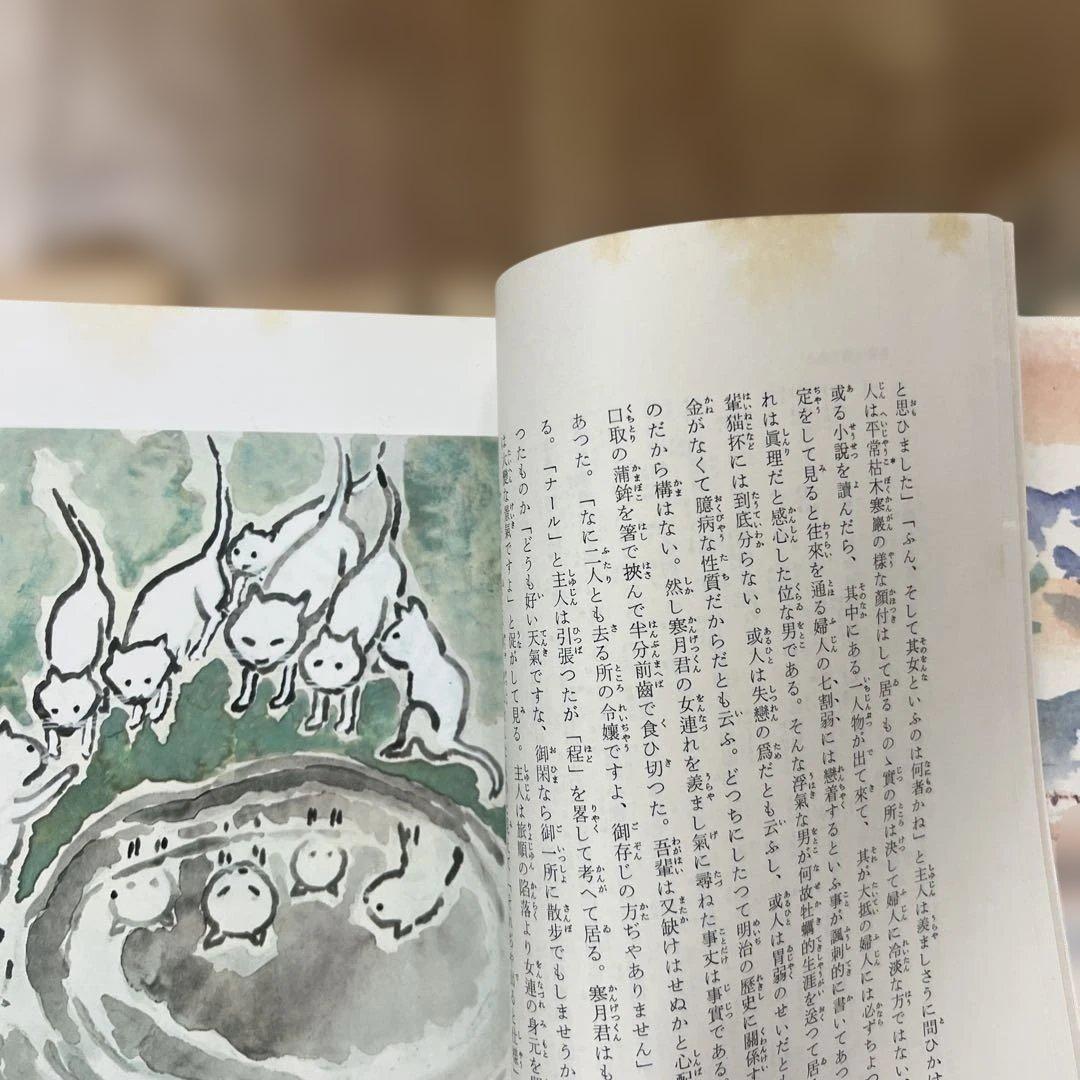 と思ひました」「ふん、そして其女といふのは何者かね」と主人は羨ましさうに問ひか
人は平常枯木寒巖の樣な顏付はして居るものゝ實の所は決して婦人に冷淡な方ではない
或る小說を讀んだら、其中にある一人物が出て來て、其が大抵の婦人には必ずちよつ
定をして見ると往來を通る婦人の七割弱には戀着するといふ事が諷刺的に書いてあつ
れは眞理だと感心した位な男である。そんな浮氣な男が何故牡蠣的生涯を送つて居
輩猫抔には到底分らない。或人は失戀の爲だとも云ふし、或人は胃弱のせいだとも
金がなくて臆病な性質だからだとも云ふ。どつちにしたつて明治の歷史に關係す
のだから構はない。然し寒月君の女連れを羨まし氣に尋ねた事丈は事實である
口取の蒲鉾を箸で挾んで半分前齒で食ひ切つた。吾輩は又缺けはせぬかと心配
あつた。「なに二人とも去る所の令孃ですよ、御存じの方ぢやありません」
る。「ナール」と主人は引張つたが「程」を畧して考へて居る。寒月君はも
つたものか「どうも好い天氣ですな、御閑なら御一所に散步でもしませうか
は大變な景氣ですよ」と促がして見る。主人は旅順の陷落より女連の身元を